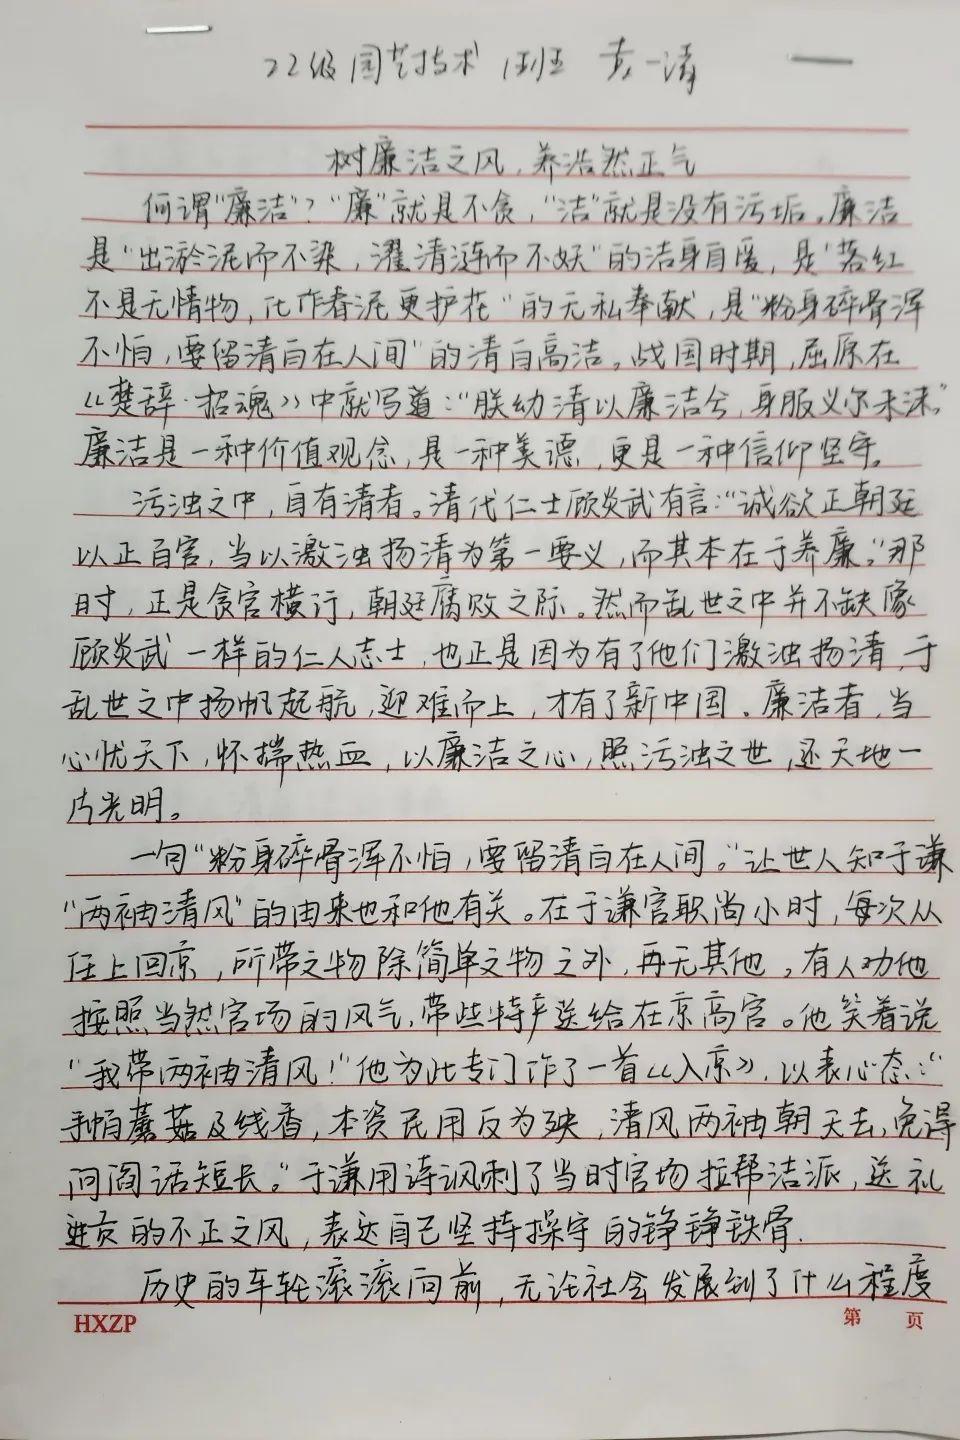 22级园艺技术1班 袁一清
树廉洁之风，养浩然正气
何谓“廉洁”？“廉”就是不贪，“洁”就是没有污垢。廉洁
是“出淤泥而不染，濯清涟而不妖”的洁身自爱，是“落红
不是无情物，化作春泥更护花”的无私奉献，是“粉身碎骨浑
不怕，要留清白在人间”的清白高洁。战国时期，屈原在
《楚辞·招魂》中就写道：“朕幼清以廉洁兮，身服义尔未沫。”
廉洁是一种价值观念，是一种美德，更是一种信仰坚守。
污浊之中，自有清者。清代仁士顾炎武有言：“诚欲正朝廷
以正百官，当以激浊扬清为第一要义，而其本在于养廉。”那
时，正是贪官横行，朝廷腐败之际。然而乱世之中并不缺像
顾炎武一样的仁人志士，也正是因为有了他们激浊扬清，于
乱世之中扬帆起航，迎难而上，才有了新中国。廉洁者，当
心忧天下，怀揣热血，以廉洁之心，照污浊之世，还天地一
片光明。
一句“粉身碎骨浑不怕，要留清白在人间。”让世人知于谦
“两袖清风”的由来也和他有关。在于谦官职尚小时，每次从
任上回京，所带之物除简单之物之外，再无其他。有人劝他
按照当然官场的风气，带些特产送给在京高官。他笑着说
“我带两袖清风！”他为此专门作了一首《入京》，以表心态：“
手帕蘑菇及线香，本资民用反为殃，清风两袖朝天去，免得
闫阎话短长。”于谦用诗讽刺了当时官场拉帮洁派，送礼
进贡的不正之风，表达自己坚持操守的铮铮铁骨.
历史的车轮滚滚向前，无论社会发展到了什么程度
HXZP
第 页